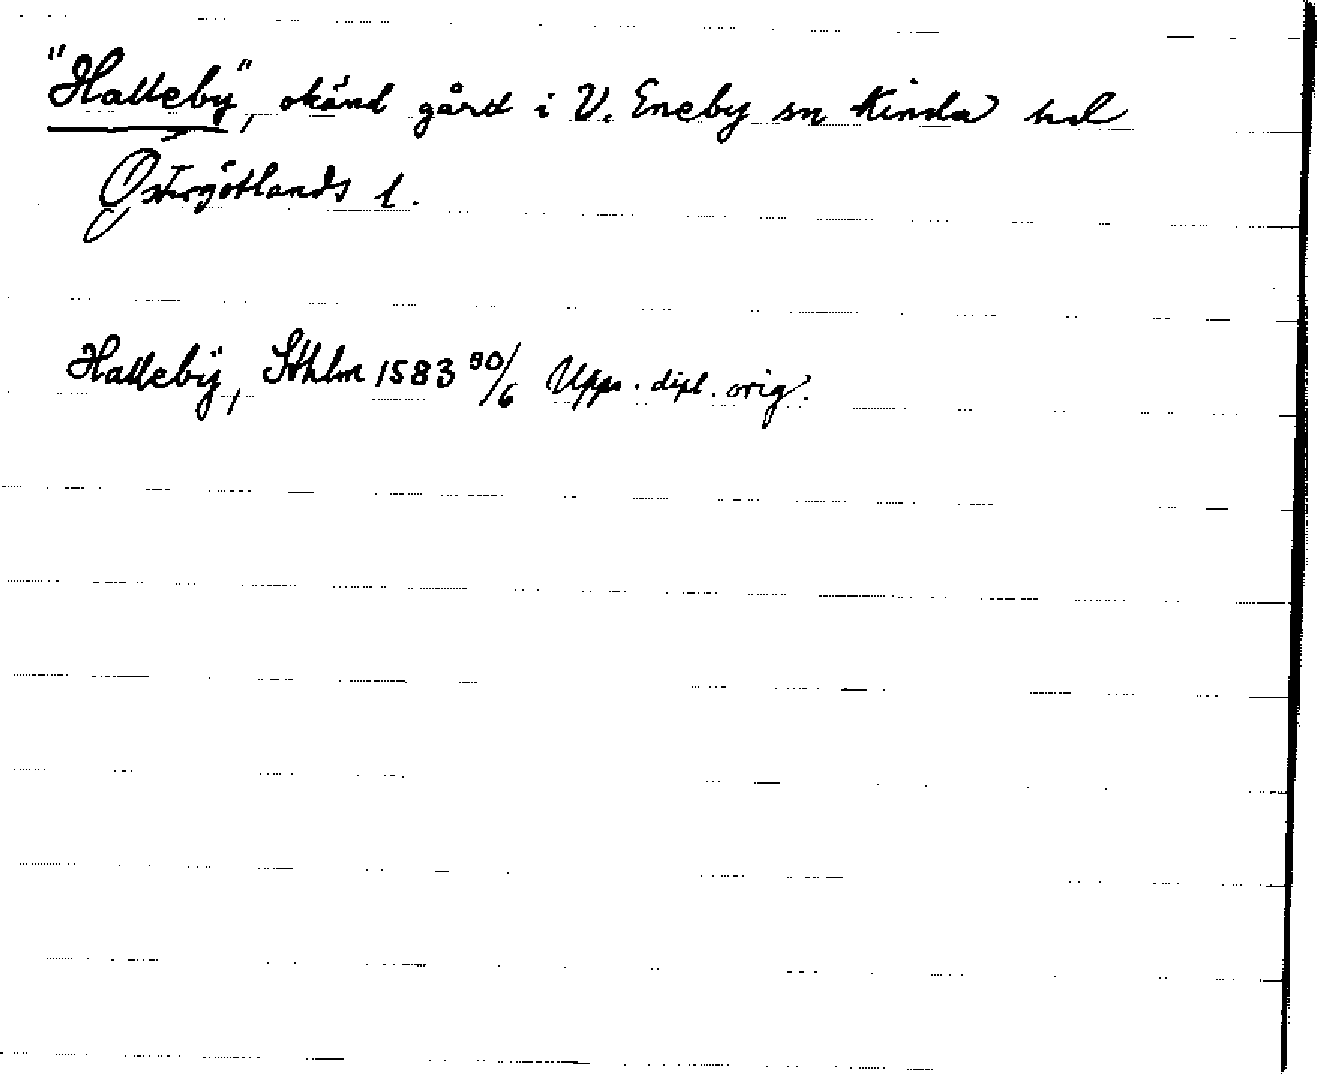 "Halleby", okänd gård i V. Eneby sn Kinda hd
Östergötlands l.
Hallebÿ, Sthlm 1583 30/6 Upps. dipl. orig.